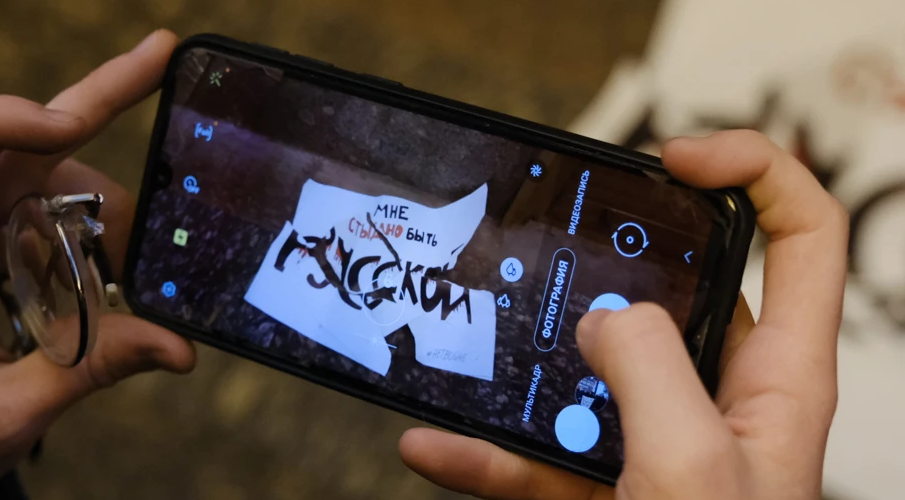 МНЕ
СТЫДНО БЫТЬ
РУССКОЙ
ВИДЕОЗАПИСЬ
ФОТОГРАФИЯ
МУЛЬТИКАДР